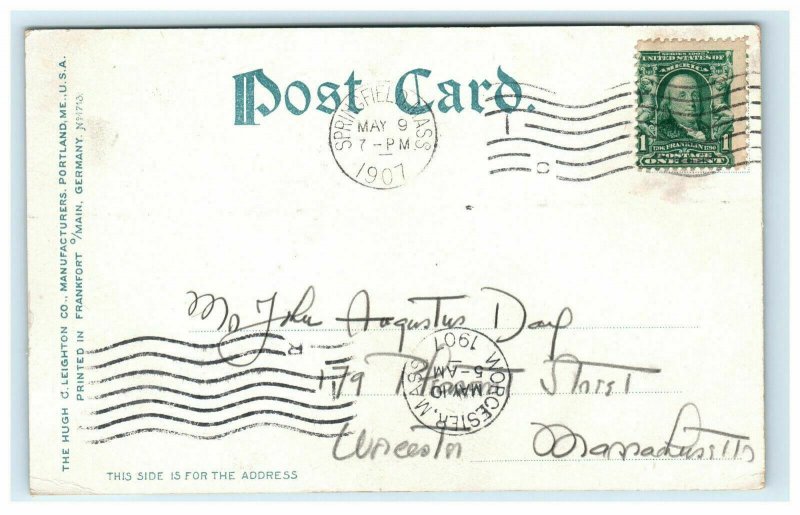 Post Card.
SPRINGFIELD, MASS
MAY 9
7-PM
1907
T
C
SERIES 1902
UNITED STATES OF
AMERICA
1 1706 FRANKLIN 1790 1
POSTAGE
ONE CENT
THE HUGH C. LEIGHTON CO., MANUFACTURERS, PORTLAND, ME., U.S.A.
PRINTED IN FRANKFORT O/MAIN, GERMANY.
John Augustus Day
179 Street
Worcester Massachusetts
R
WORCESTER, MASS
MAY 10
5-AM
1907
THIS SIDE IS FOR THE ADDRESS